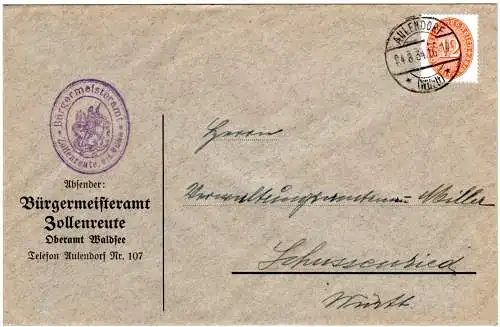 AULENDORF
24.8.34.
(Württ)
Bürgermeisteramt
Zollenreute
Absender:
Bürgermeisteramt
Zollenreute
Oberamt Waldsee
Telefon Aulendorf Nr. 107
Herrn
Miller
Schussenried
Württ.